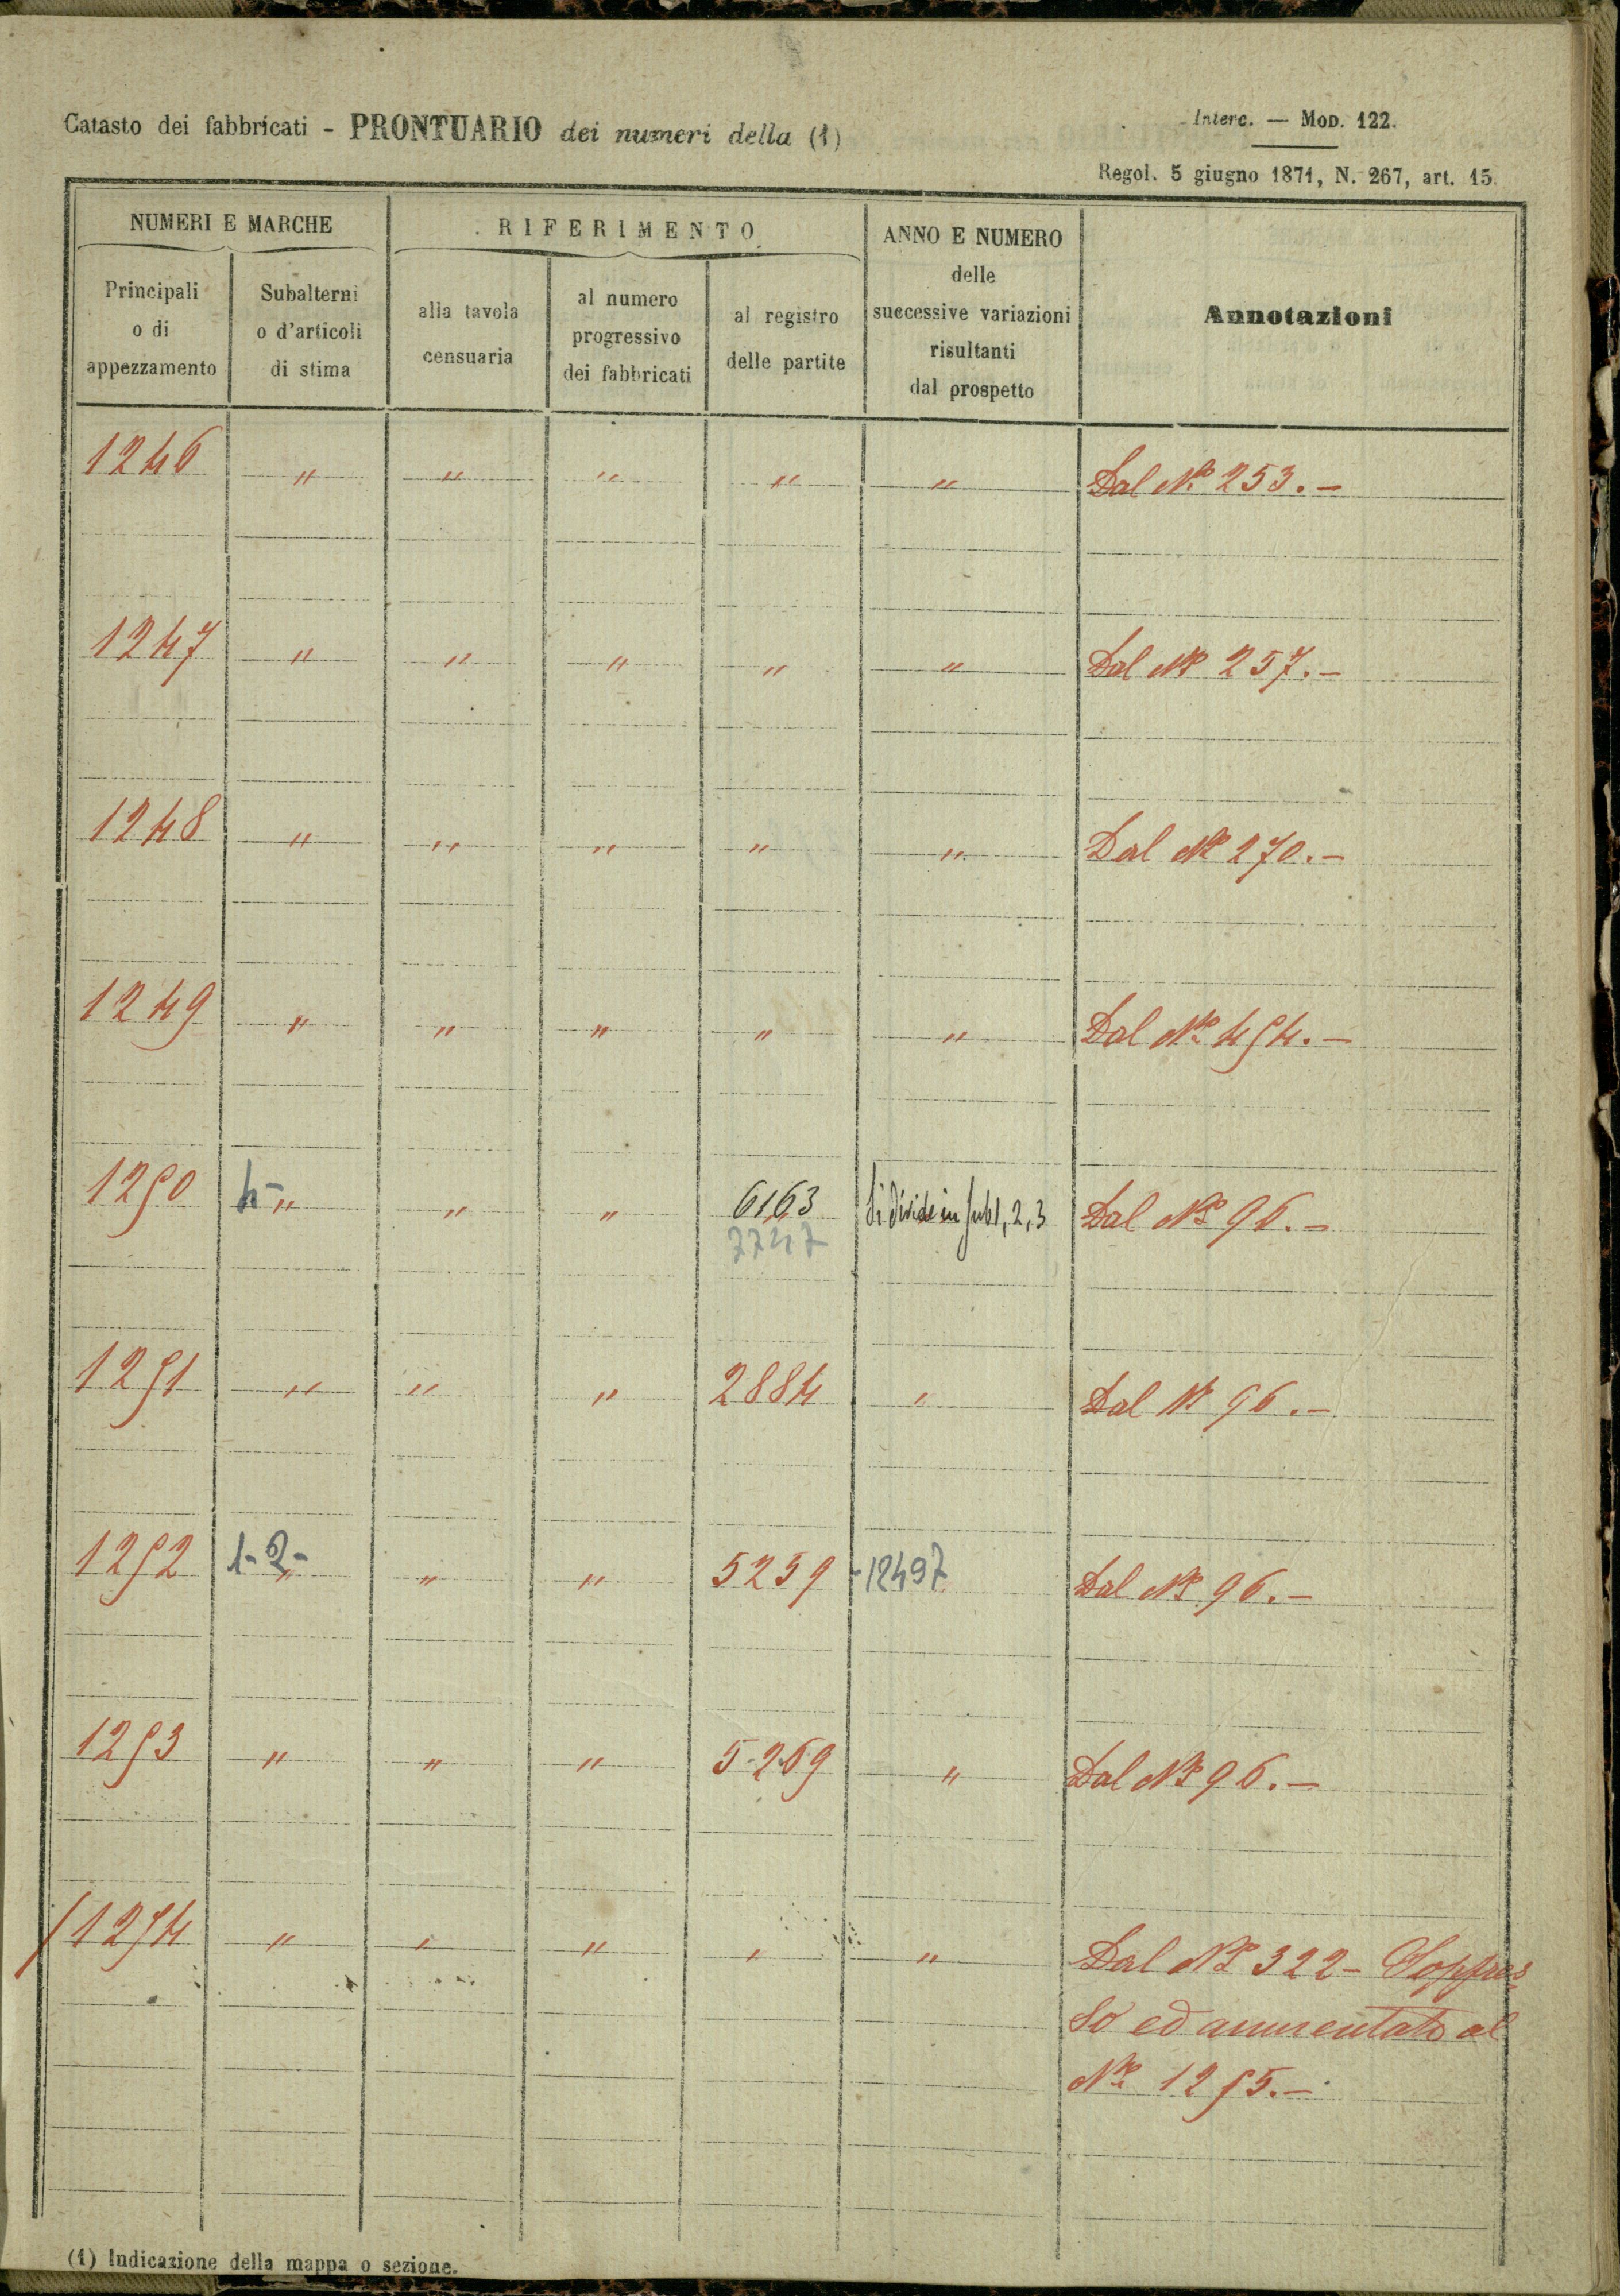 Catasto dei fabbricati - PRONTUARIO dei numeri della (1)
Interc. — Mod. 122.
Regol. 5 giugno 1871, N. 267, art. 15.
NUMERI E MARCHE
RIFERIMENTO
ANNO E NUMERO
delle
successive variazioni
risultanti
dal prospetto
Annotazioni
Principali
o di
appezzamento
Subalterni
o d'articoli
di stima
alla tavola
censuaria
al numero
progressivo
dei fabbricati
al registro
delle partite
1246 " " " " " Dal No 253. -
1247 " " " " " Dal No 257. -
1248 " " " " " Dal No 270. -
1249 " " " " " Dal No 454. -
1250 4- " " " 6163 Si divide in sub 1, 2, 3 Dal No 96. -
7747
1251 " " " 2884 " Dal No 96. -
1252 1-2- " " " 5259 -12497 Dal No 96. -
1253 " " " 5269 " Dal No 96. -
/1254 " " " " " Dal No 322 - Soppres
so ed aumentato al
No 1255. -
(1) Indicazione della mappa o sezione.